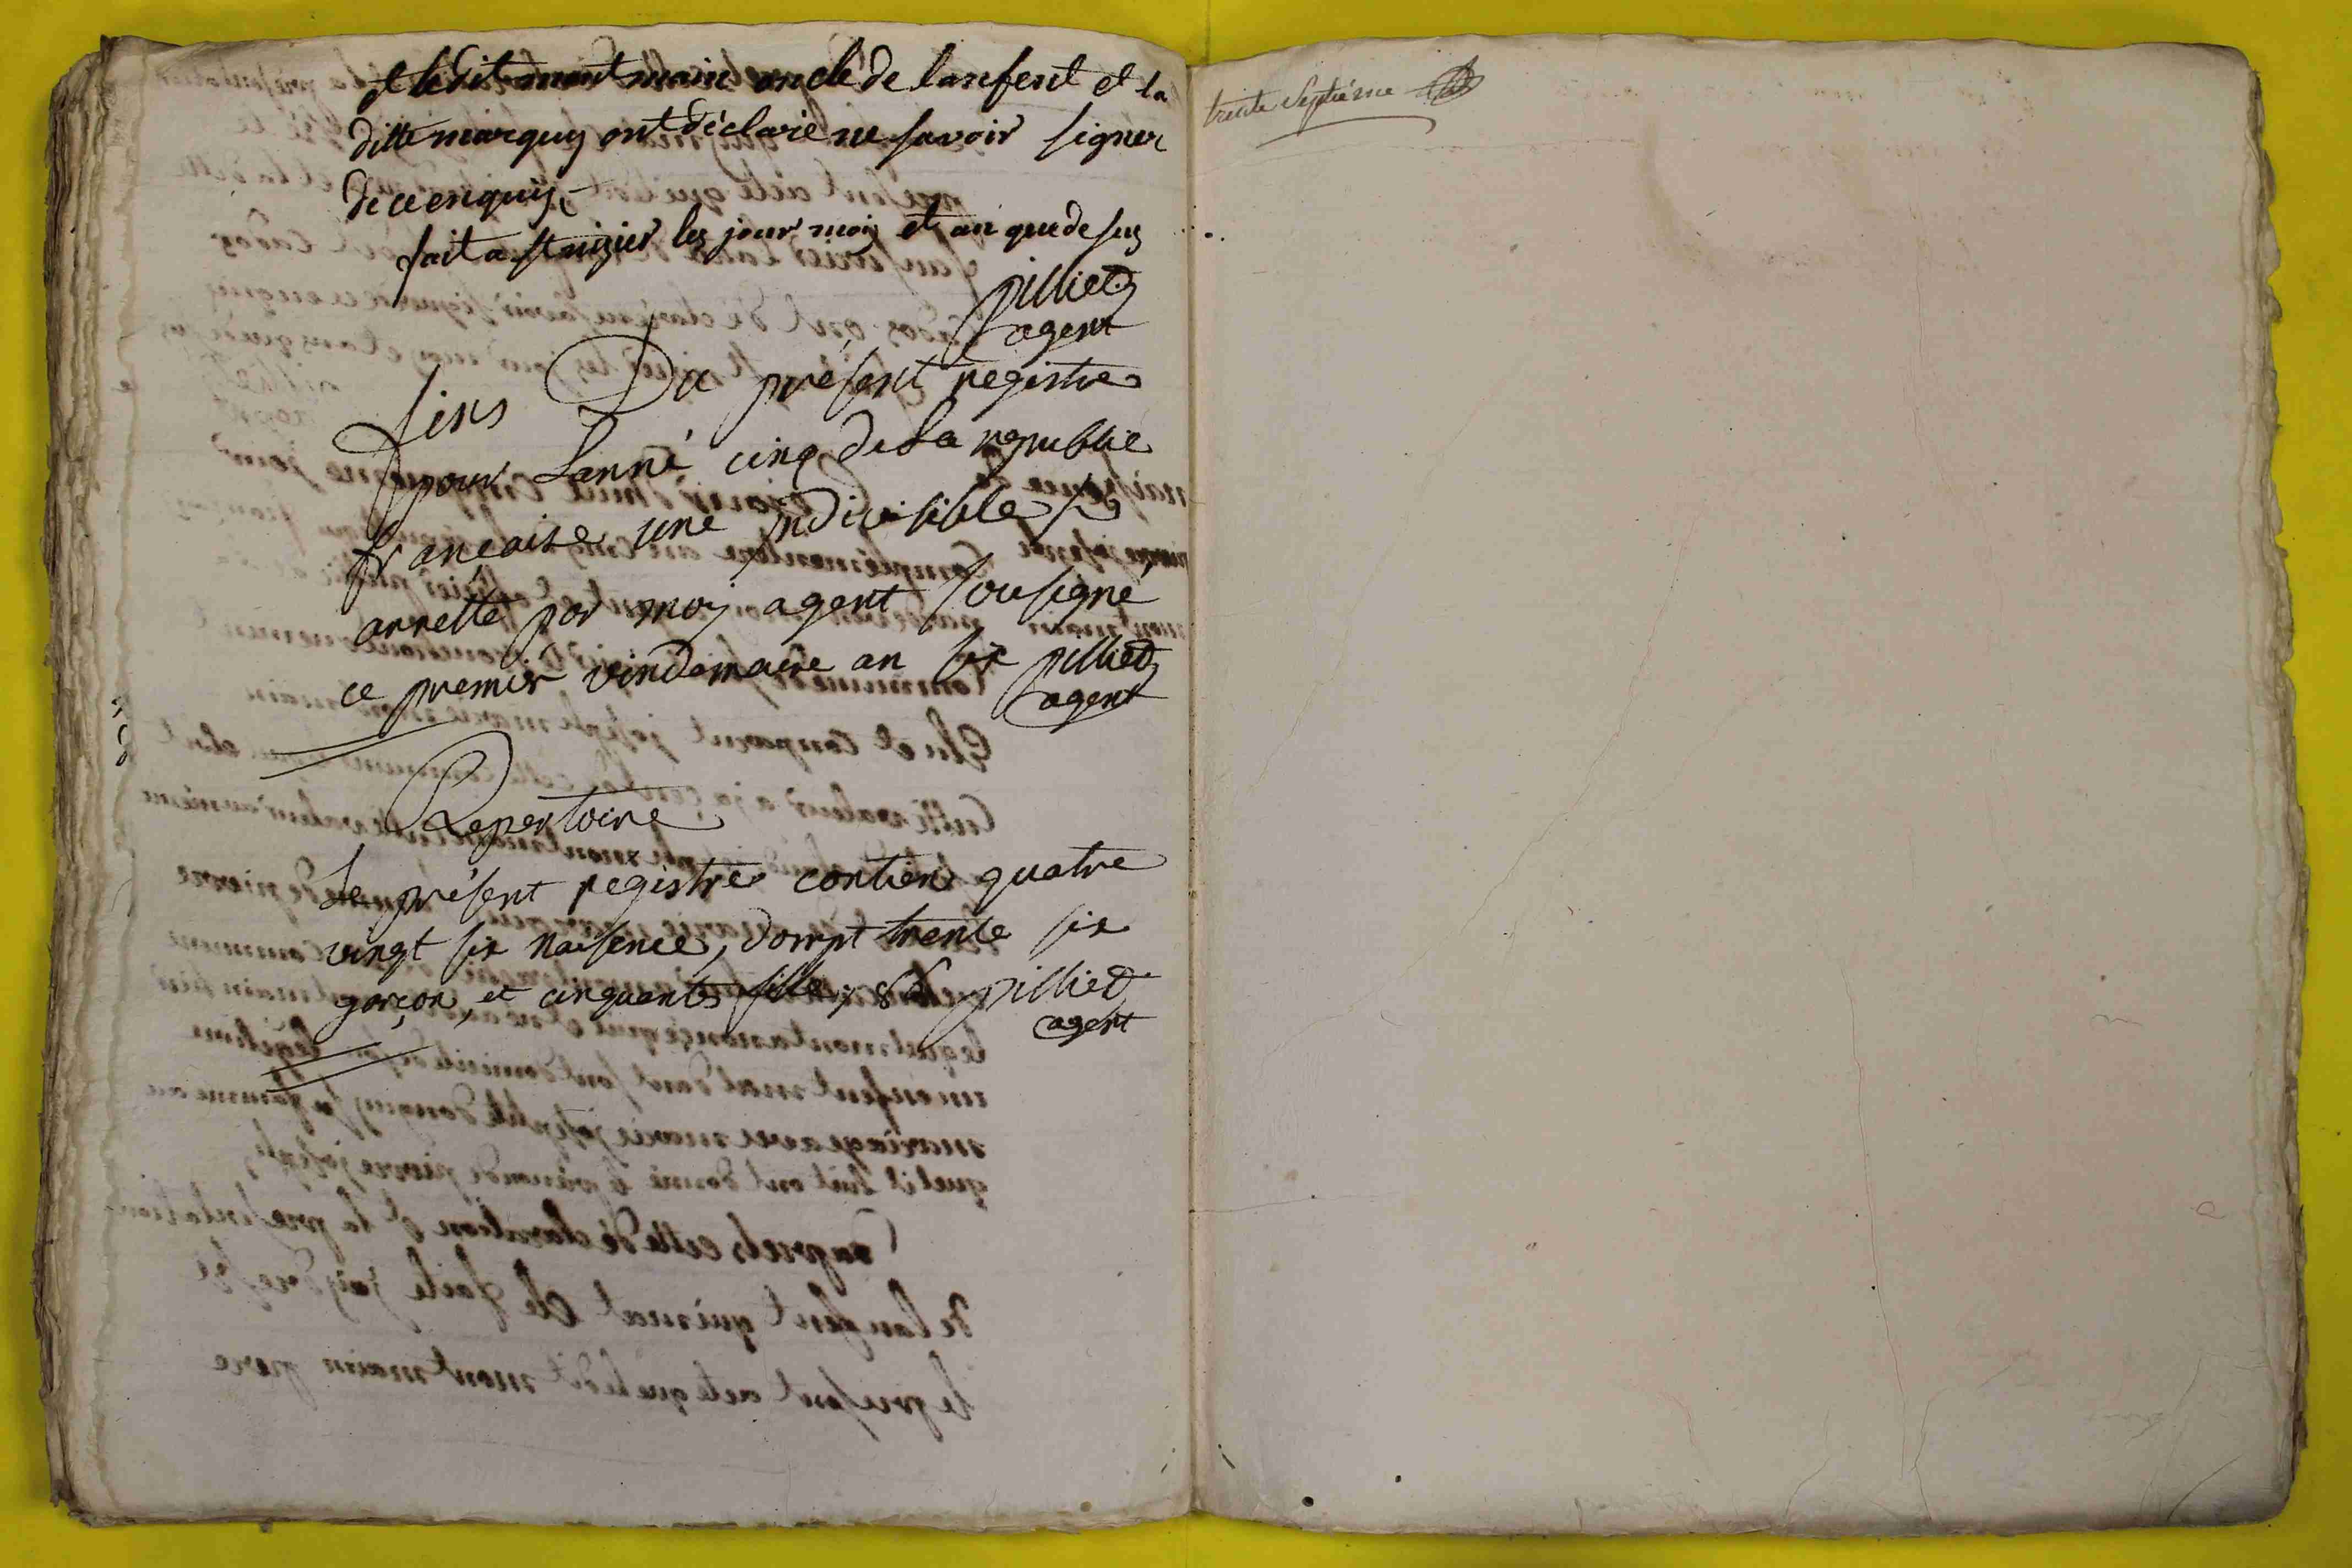 et ledit montmain oncle de lanfent et la
ditte marquy ont déclaré ne savoir signer
de ce enquis
fait a st nizier les jour moy et an que desus
pilliet
agent
fins Du présent registre
pour Lanné cinq de La republie
française une indivisible
arretté par moy agent sousigné
ce premier vindemaire an six pilliet
agent
Repertoire
Le présent registre contien quatre
vingt six naisence, dompt trente six
garçon, et cinquantes fille, 86 pilliet
agent
trente septiéme